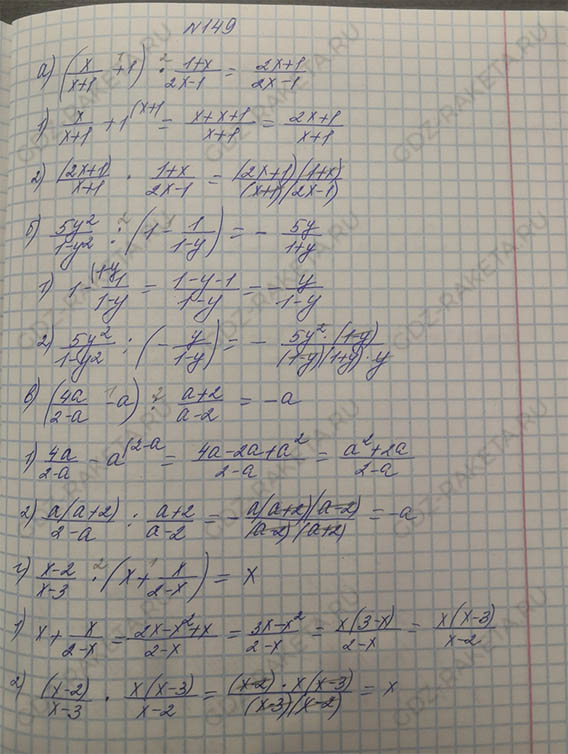 №149
а) (x/(x+1) + 1) · (1+x)/(2x-1) = (2x+1)/(2x-1)
1) x/(x+1) + 1^(x+1 = (x+x+1)/(x+1) = (2x+1)/(x+1)
2) (2x+1)/(x+1) · (1+x)/(2x-1) = (2x+1)(1+x)/(x+1)(2x-1)
б) 5y²/(1-y²) : (1 - 1/(1-y)) = - 5y/(1+y)
1) 1^(1-y - 1/(1-y) = (1-y-1)/(1-y) = - y/(1-y)
2) 5y²/(1-y²) : (- y/(1-y)) = - 5y²·(1-y)/(1-y)(1+y)·y
в) (4a/(2-a) - a) : (a+2)/(a-2) = -a
1) 4a/(2-a) - a^(2-a = (4a-2a+a²)/(2-a) = (a²+2a)/(2-a)
2) a(a+2)/(2-a) : (a+2)/(a-2) = - a(a+2)(a-2)/(a-2)(a+2) = -a
г) (x-2)/(x-3) · (x + x/(2-x)) = x
1) x + x/(2-x) = (2x-x²+x)/(2-x) = (3x-x²)/(2-x) = x(3-x)/(2-x) = x(x-3)/(x-2)
2) (x-2)/(x-3) · x(x-3)/(x-2) = (x-2)·x(x-3)/(x-3)(x-2) = x
GDZ-RAKETA.RU